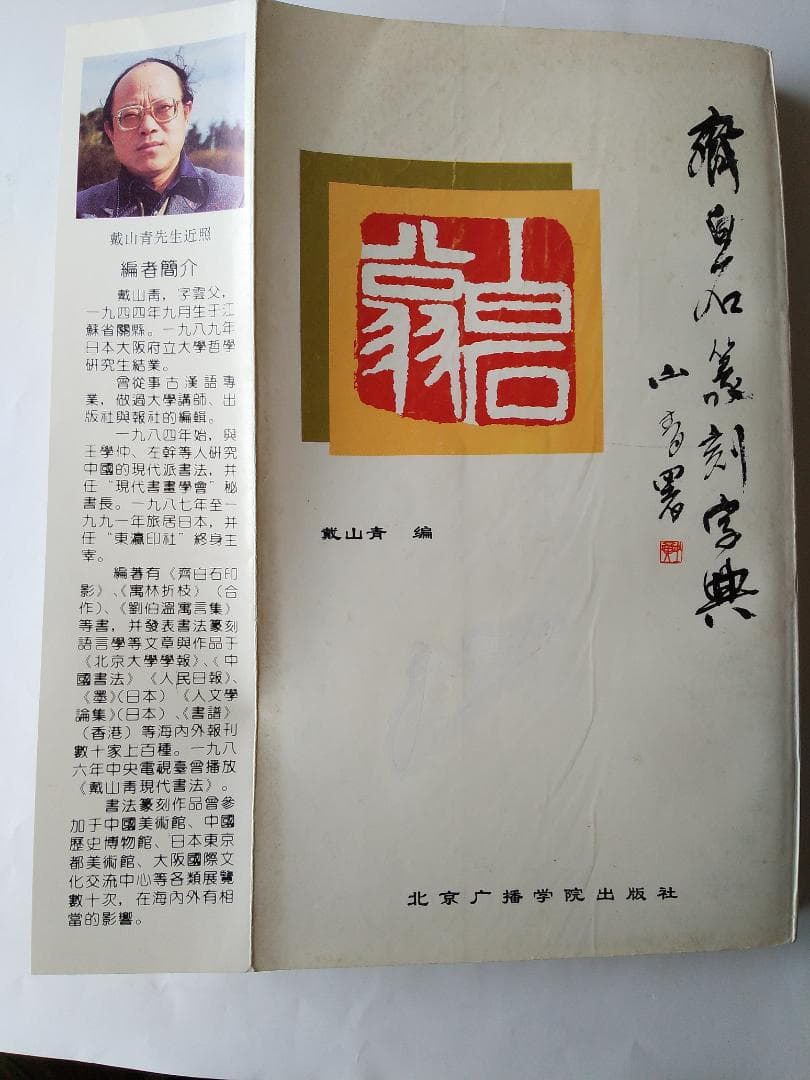 戴山青先生近照
編者簡介
戴山青，字雲父，
一九四四年九月生于江
蘇省關縣。一九八九年
日本大阪府立大學哲學
研究生結業。
曾從事古漢語專
業，做過大學講師、出
版社與報社的編輯。
一九八四年始，與
王學仲、左幹等人研究
中國的現代派書法，并
任“現代書畫學會”秘
書長。一九八七年至一
九九一年旅居日本，并
任“東瀛印社”終身主
宰。
編著有《齊白石印
影》、《寓林折枝》（合
作）、《劉伯溫寓言集》
等書，并發表書法篆刻
語言學等文章與作品于
《北京大學學報》、《中
國書法》《人民日報》、
《墨》（日本）《人文學
論集》（日本）、《書譜》
（香港）等海內外報刊
數十家上百種。一九八
六年中央電視臺曾播放
《戴山青現代書法》。
書法篆刻作品曾參
加于中國美術館、中國
歷史博物館、日本東京
都美術館、大阪國際文
化交流中心等各類展覽
數十次，在海內外有相
當的影響。
齊白石篆刻字典
山青署
白石翁
戴山青 编
北京广播学院出版社